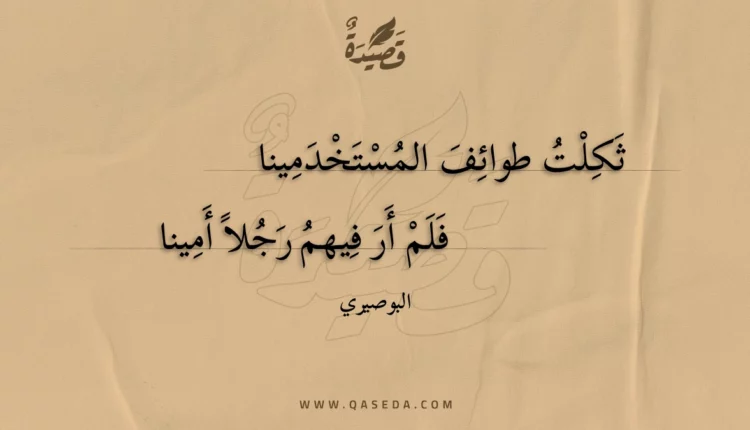 قَصِيْدَةٌ
ثَكِلْتُ طوائِفَ المُسْتَخْدَمِينا
فَلَمْ أَرَ فِيهمُ رَجُلاً أَمِينا
البوصيري
WWW.QASEDA.COM